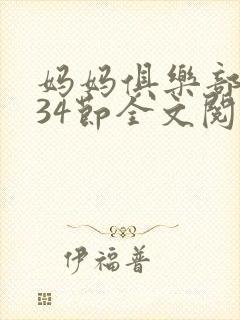 妈妈俱樂部
34節全文閱
伊福普